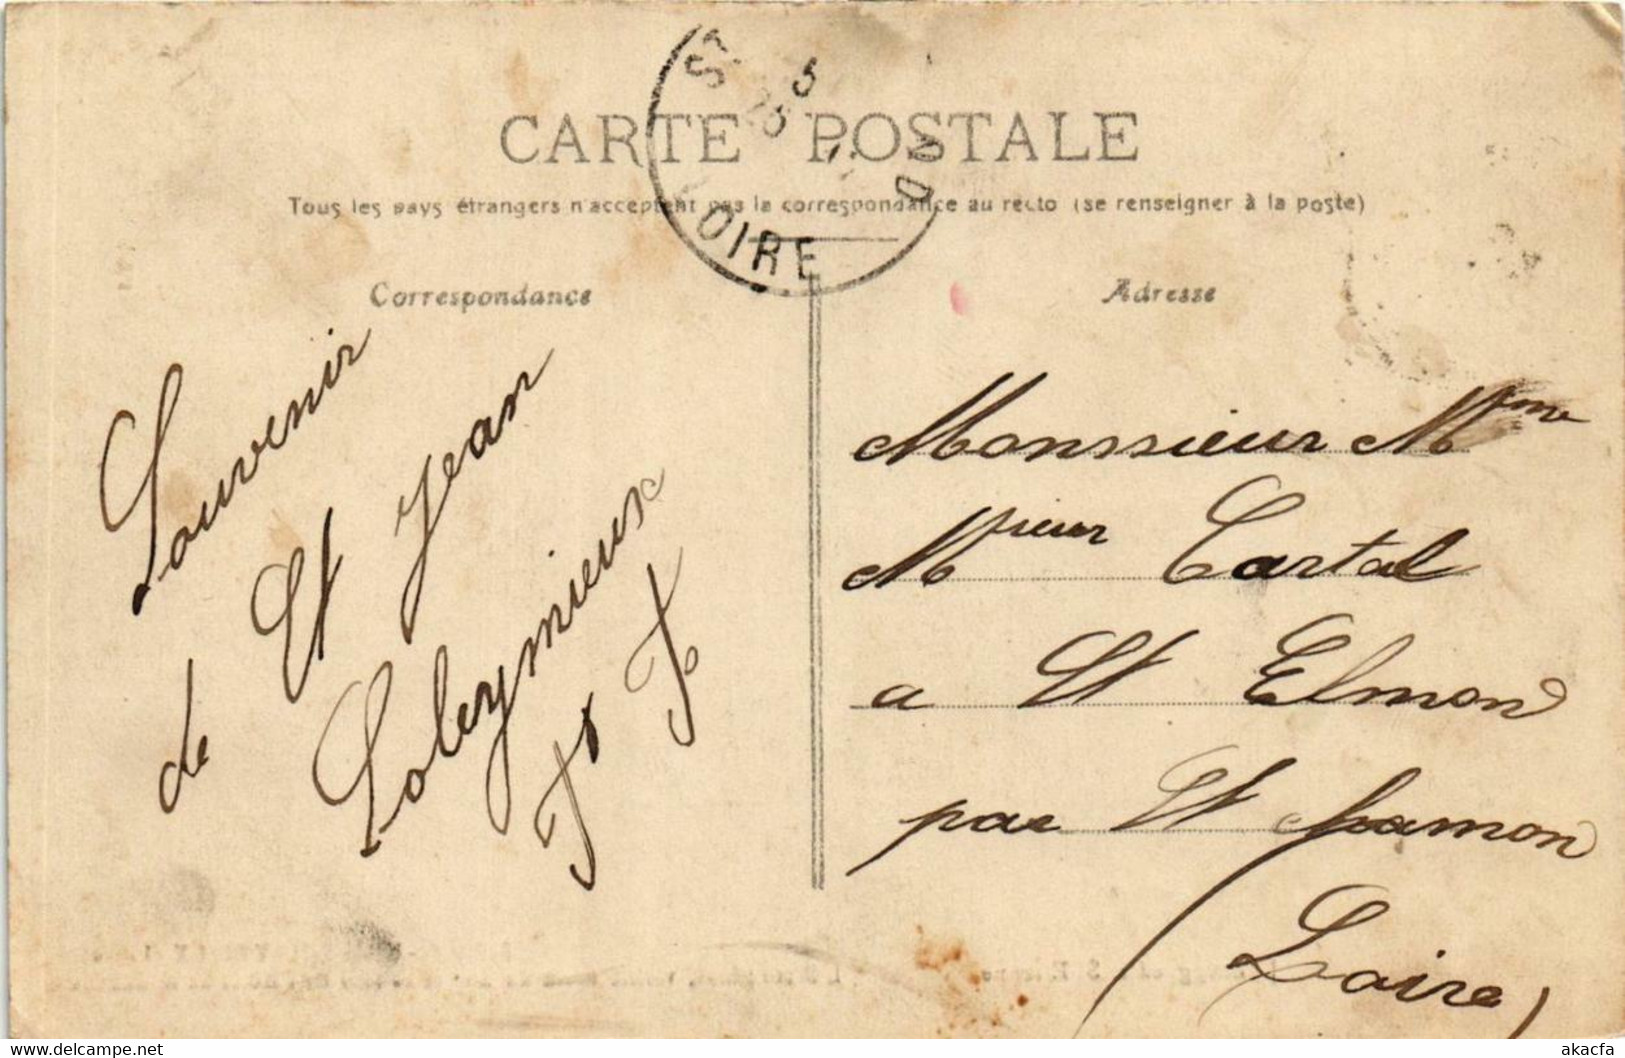 CARTE POSTALE
Tous les pays étrangers n'acceptent pas la correspondance au recto (se renseigner à la poste)
LOIRE
Correspondance
Souvenir
de St Jean
Soleymieux
Adresse
Monssieur Mme
Mrieur Cartal
a St Elmond
par St chamon
(Loire)
akacfa